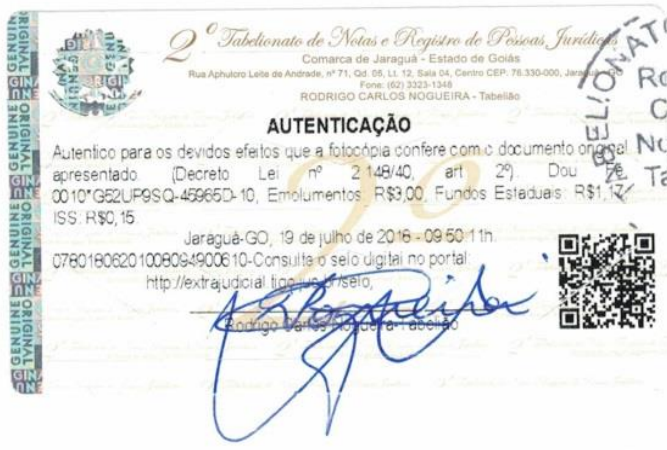 2º Tabelionato de Notas e Registro de Pessoas Jurídicas
Comarca de Jaraguá - Estado de Goiás
Rua Aphulcro Leite de Andrade, nº 71, Qd. 05, Lt. 12, Sala 04, Centro CEP: 76.330-000, Jaraguá-GO
Fone: (62) 3323-1348
RODRIGO CARLOS NOGUEIRA - Tabelião
AUTENTICAÇÃO
Autentico para os devidos efeitos que a fotocópia confere com o documento original
apresentado (Decreto Lei nº 2.148/40, art 2º). Dou fé.
0010*G52UP9SQ-45965D-10, Emolumentos: R$3,00, Fundos Estaduais: R$1,17,
ISS: R$0,15.
Jaraguá-GO, 19 de julho de 2018 - 09:50:11h.
07801806201008094900610-Consulte o selo digital no portal:
http://extrajudicial.tjgo.jus.br/selo,
Rodrigo Carlos Nogueira-Tabelião
2º
GENUINE ORIGINAL
GENUINE ORIGINAL
GENUINE ORIGINAL